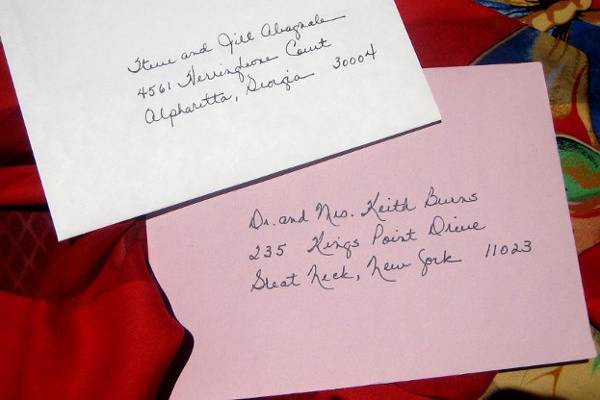 Steve and Jill Abagnale
4561 Herringbone Court
Alpharetta, Georgia 30004
Dr. and Mrs. Keith Burns
235 Kings Point Drive
Great Neck, New York 11023